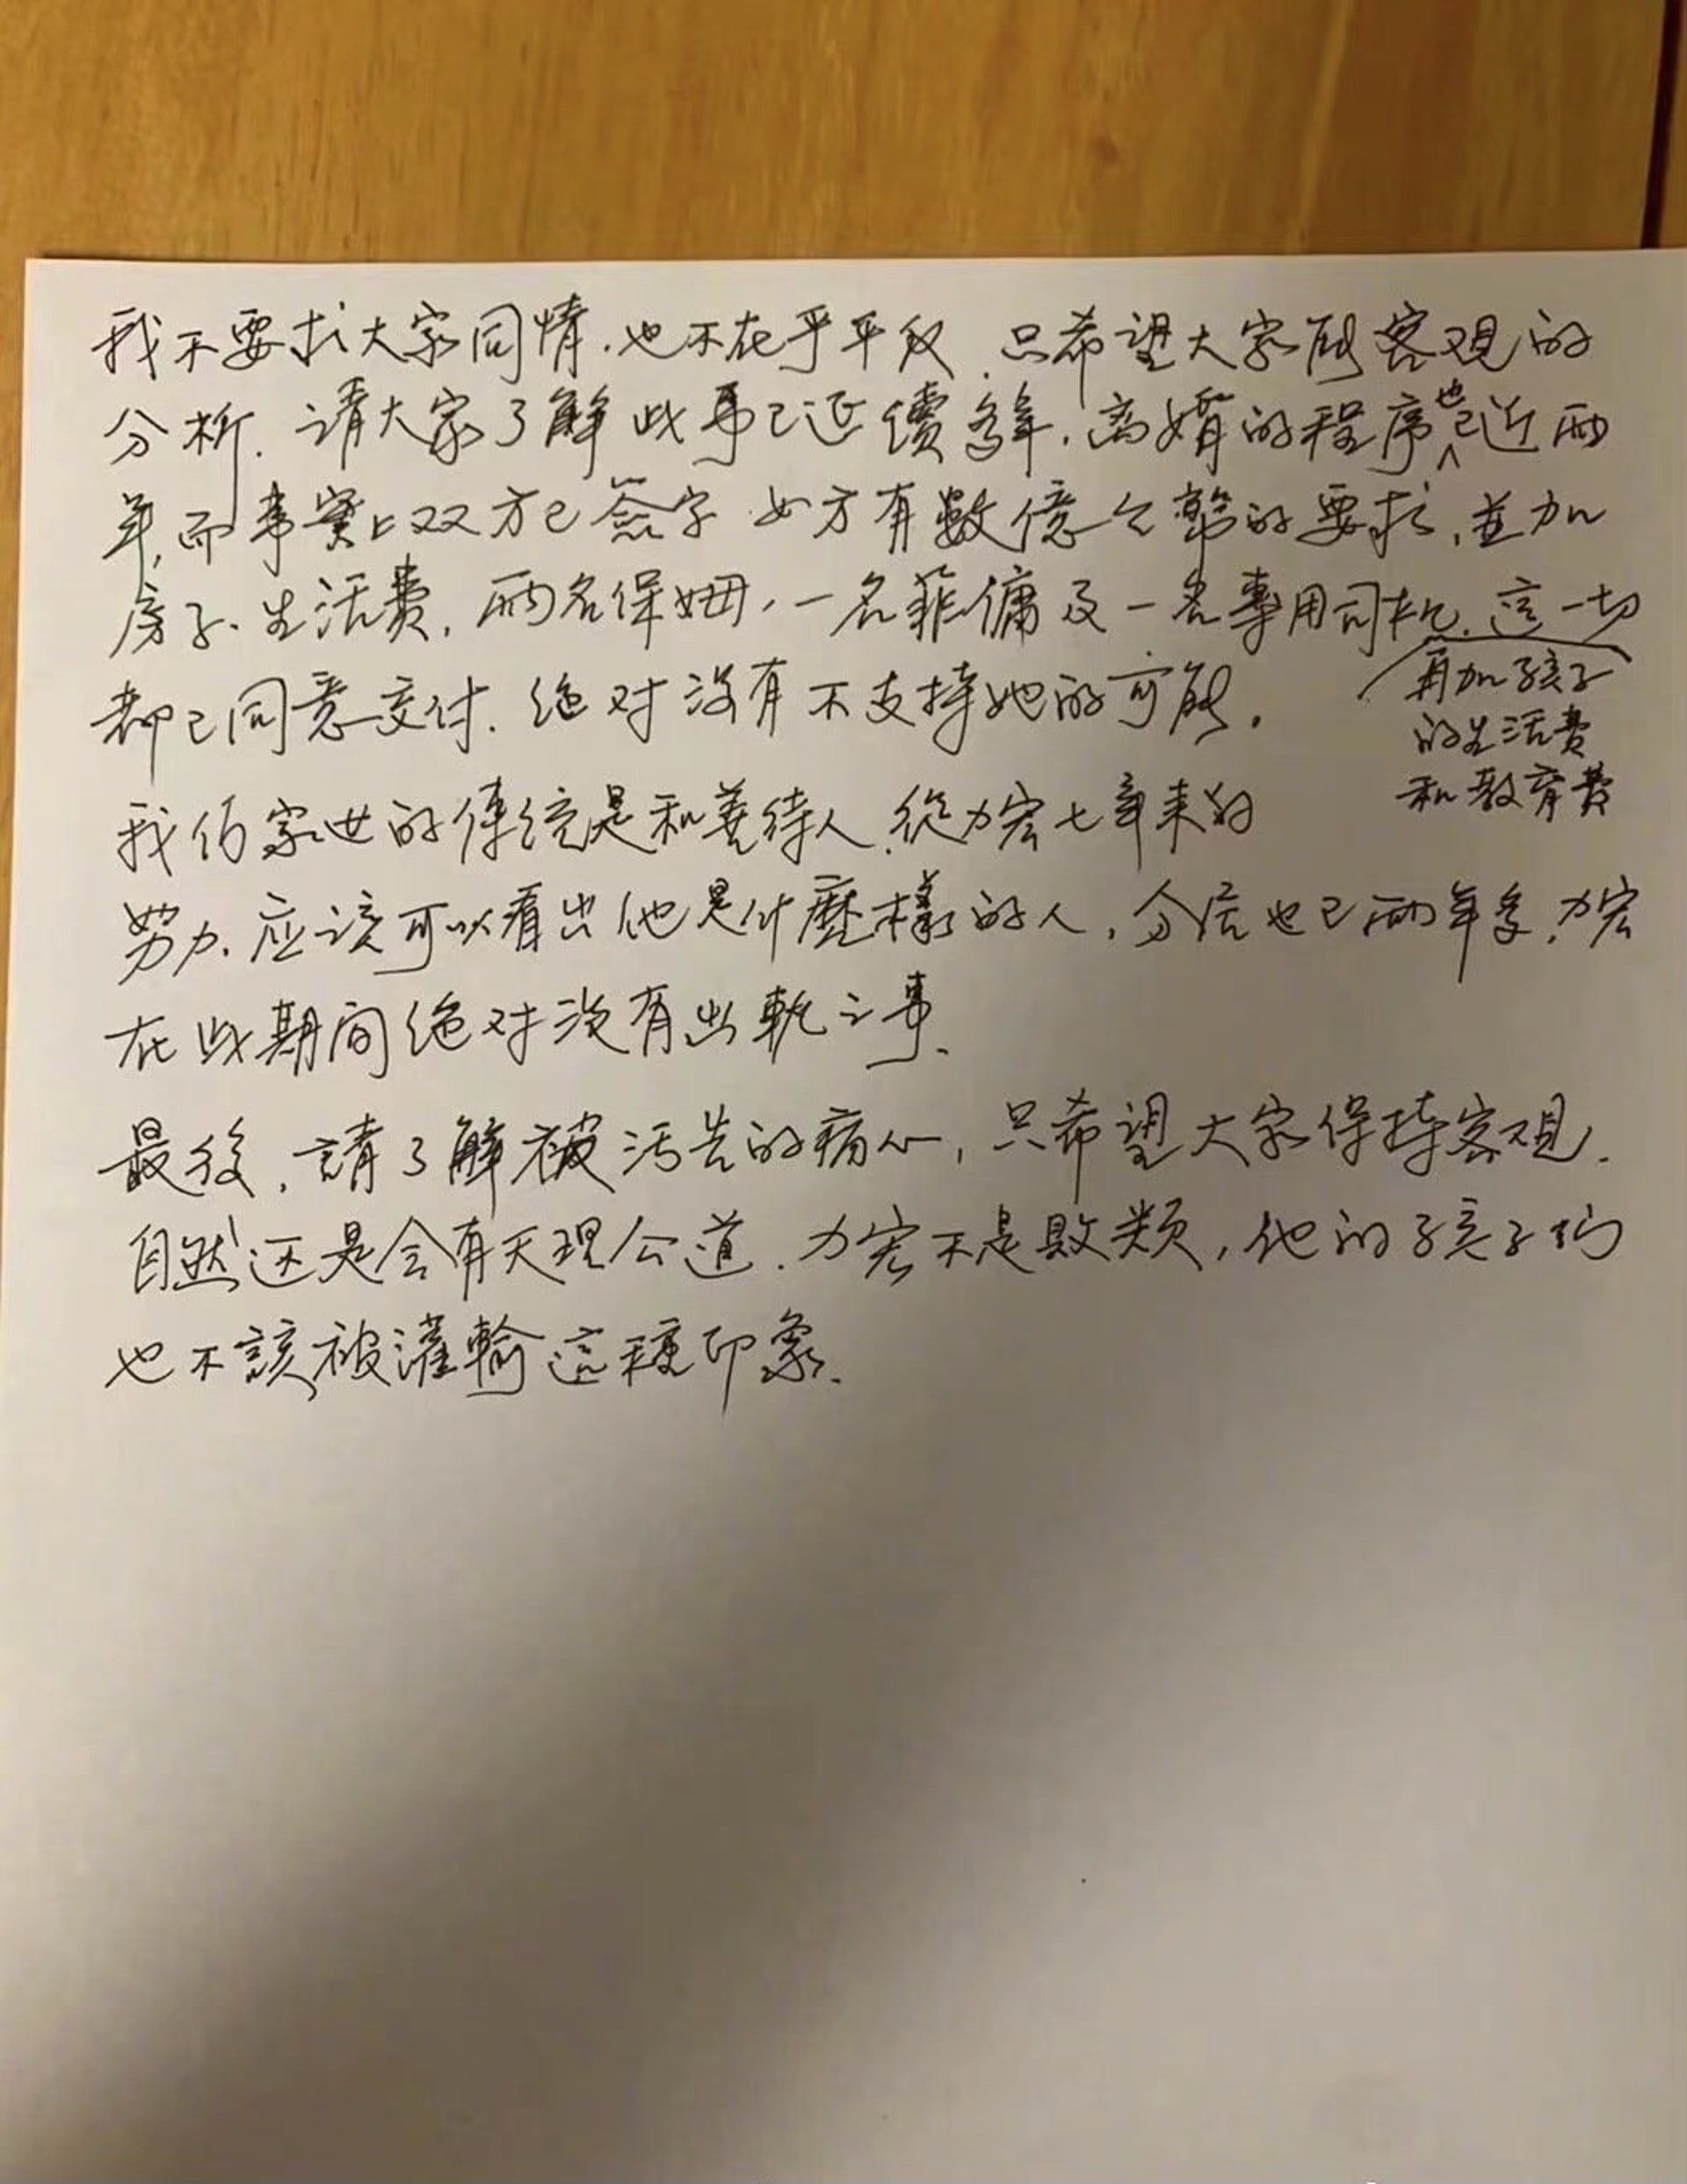 我不要求大家同情.也不在乎平反.只希望大家能客观的
分析.请大家了解此事已延續多年,离婚的程序也已近两
年,而事實上双方已簽字.女方有數億台幣的要求,並加
房子、生活費,两名保姆,一名菲傭及一名專用司机.這一切
再加孩子
的生活費
和教育費
都已同意交付.绝对没有不支持她的可能.
我们家世的傳统是和善待人.從力宏七年来的
努力.应该可以看出他是什麼樣的人.分居也已两年多,力宏
在此期间绝对没有出軌之事.
最後,請了解被污告的痛心,只希望大家保持客观.
自然还是会有天理公道.力宏不是敗类,他的孩子们
也不該被灌輸這種印象.